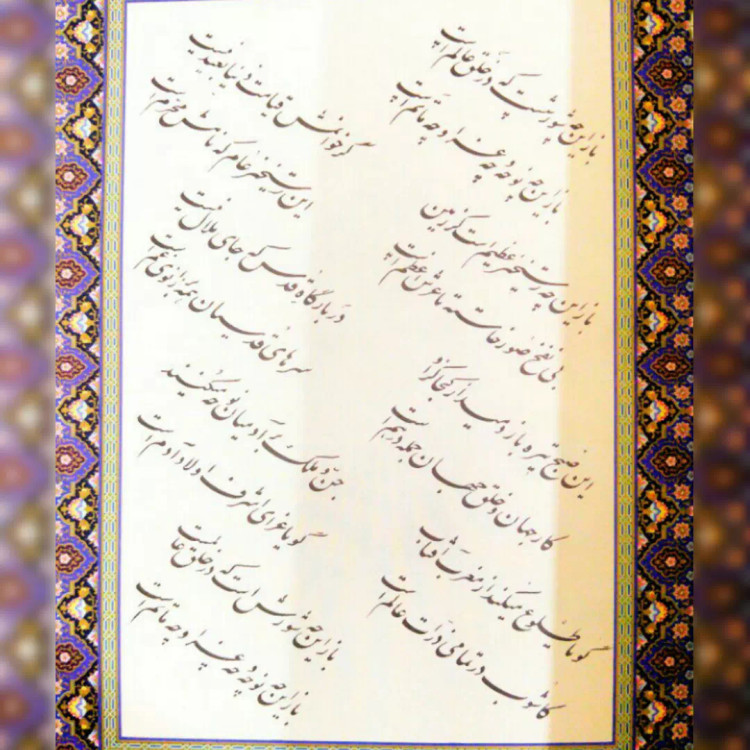 باز این چه شورش است که در خلق عالم است
باز این چه نوحه و چه عزا و چه ماتم است
باز این چه رستخیز عظیم است کز زمین
بی نفخ صور خاسته تا عرش اعظم است
این صبح تیره باز دمید از کجا کزو
کار جهان و خلق جهان جمله درهم است
گویا طلوع میکند از مغرب آفتاب
کاشوب در تمامی ذرات عالم است
گر خوانمش قیامت دنیا بعید نیست
این رستخیز عام که نامش محرم است
در بارگاه قدس که جای ملال نیست
سرهای قدسیان همه بر زانوی غم است
جن و ملک بر آدمیان نوحه میکنند
گویا عزای اشرف اولاد آدم است
باز این چه شورش است که در خلق عالم است
باز این چه نوحه و چه عزا و چه ماتم است